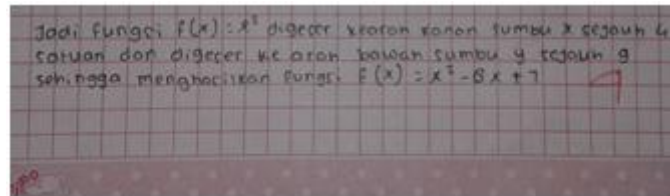 Jadi fungsi f(x) = x² digeser kearah kanan sumbu x sejauh 4
satuan dan digeser ke arah bawah sumbu y sejauh 9
sehingga menghasilkan fungsi f(x) = x² - 8x + 7